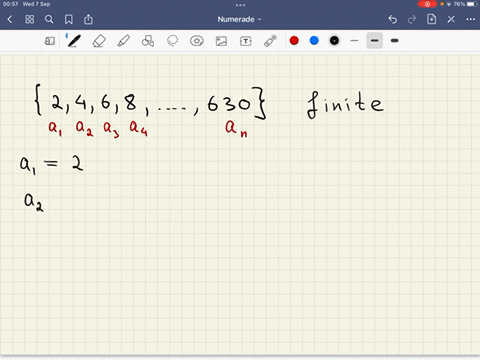 00:57 Wed 7 Sep
76%
Numerade
{2, 4, 6, 8, ...., 630} finite
a₁ a₂ a₃ a₄ aₙ
a₁ = 2
a₂